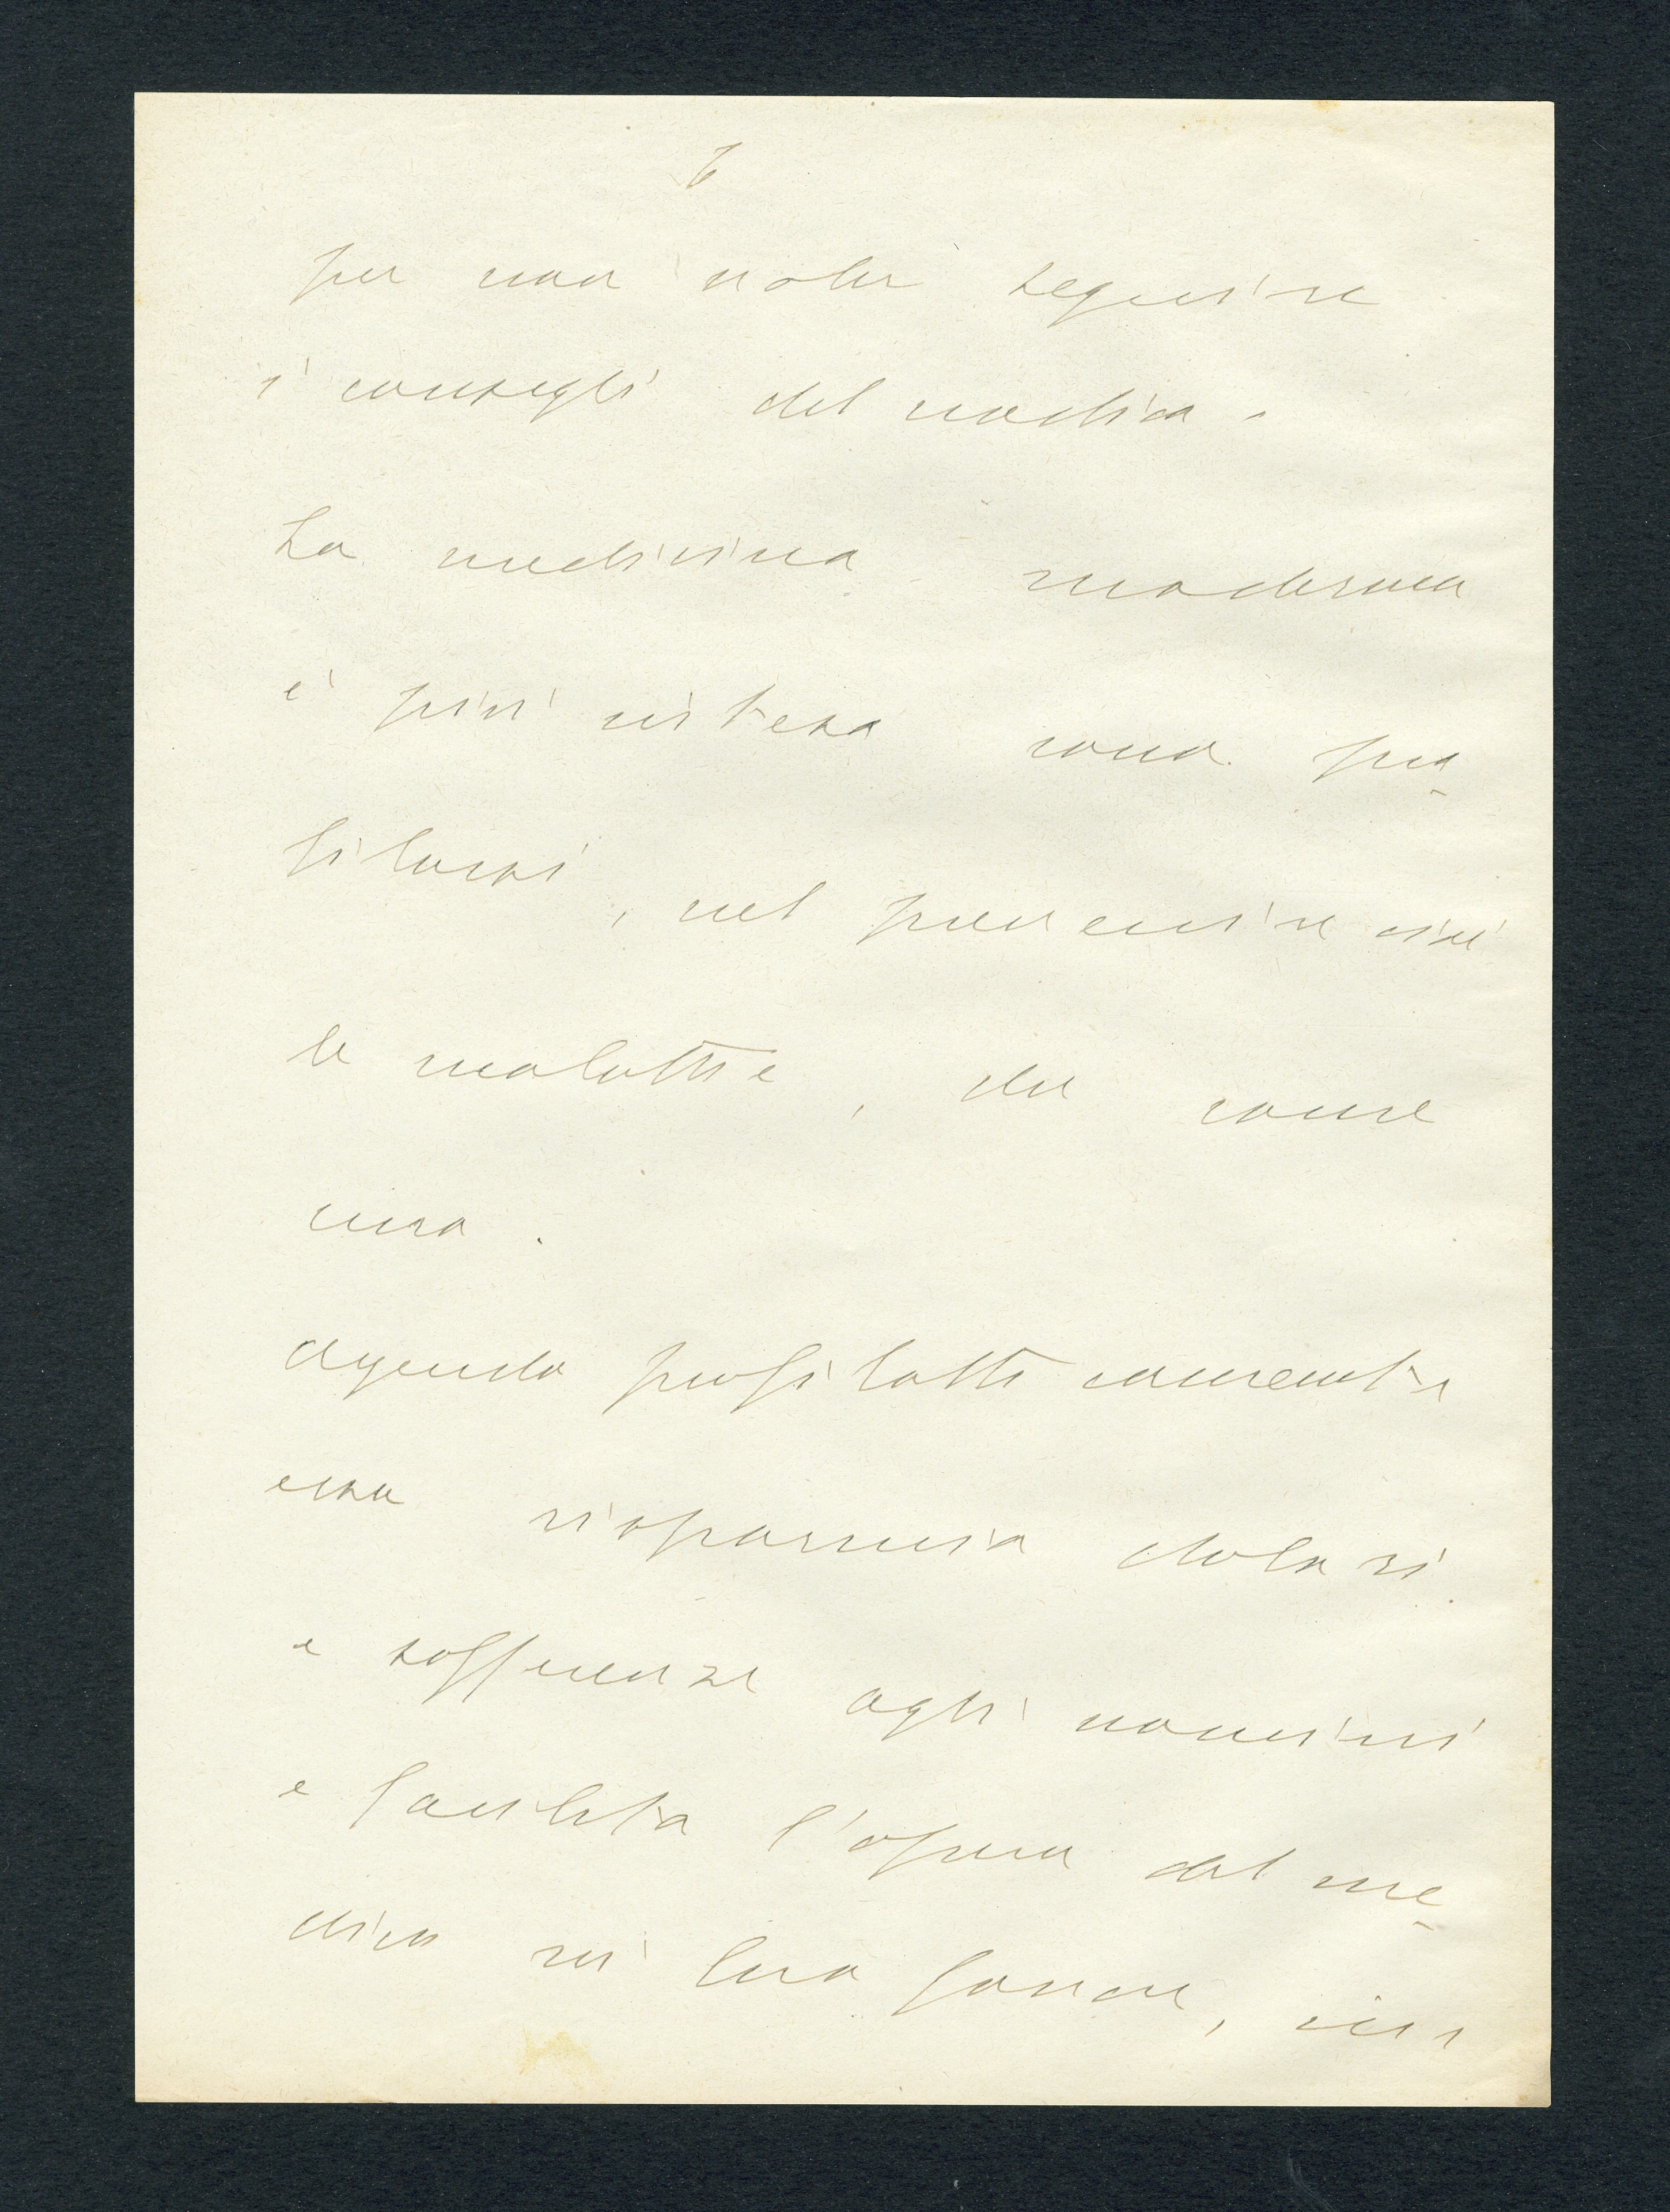 6
per non voler seguire
i consigli del medico.
La medicina moderna
è più intesa come pro
filassi, nel prevenire cioè
le malattie, che come
cura.
Agendo profilatticamente
essa risparmia dolori
e sofferenze agli uomini
e facilita l'opera del me
dico in loro favore,